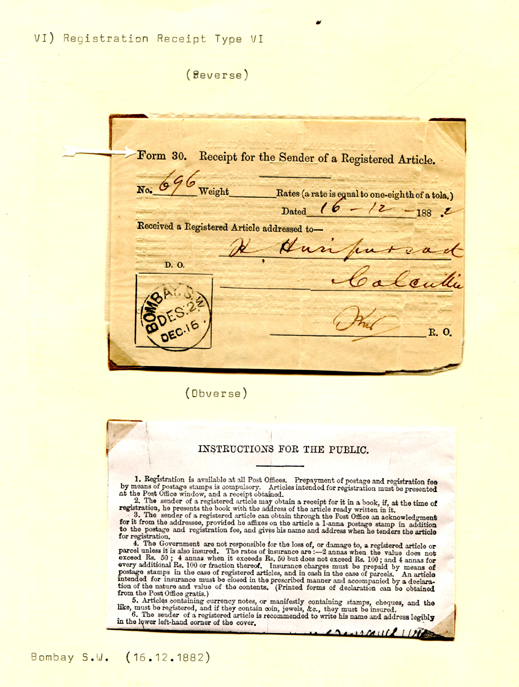 VI) Registration Receipt Type VI
(Reverse)
Form 30. Receipt for the Sender of a Registered Article.
No. 696 Weight Rates (a rate is equal to one-eighth of a tola.)
Dated 16 - 12 - 1882
Received a Registered Article addressed to—
H Huripursad
D. O.
Calcutta
BOMBAY. S.W.
DES:2.
DEC.16.
R. O.
(Obverse)
INSTRUCTIONS FOR THE PUBLIC.
1. Registration is available at all Post Offices. Prepayment of postage and registration fee
by means of postage stamps is compulsory. Articles intended for registration must be presented
at the Post Office window, and a receipt obtained.
2. The sender of a registered article may obtain a receipt for it in a book, if, at the time of
registration, he presents the book with the address of the article ready written in it.
3. The sender of a registered article can obtain through the Post Office an acknowledgment
for it from the addressee, provided he affixes on the article a 1-anna postage stamp in addition
to the postage and registration fee, and gives his name and address when he tenders the article
for registration.
4. The Government are not responsible for the loss of, or damage to, a registered article or
parcel unless it is also insured. The rates of insurance are :—2 annas when the value does not
exceed Rs. 50 ; 4 annas when it exceeds Rs. 50 but does not exceed Rs. 100 ; and 4 annas for
every additional Rs. 100 or fraction thereof. Insurance charges must be prepaid by means of
postage stamps in the case of registered articles, and in cash in the case of parcels. An article
intended for insurance must be closed in the prescribed manner and accompanied by a declara-
tion of the nature and value of the contents. (Printed forms of declaration can be obtained
from the Post Office gratis.)
5. Articles containing currency notes, or manifestly containing stamps, cheques, and the
like, must be registered, and if they contain coin, jewels, &c., they must be insured.
6. The sender of a registered article is recommended to write his name and address legibly
in the lower left-hand corner of the cover.
Bombay S.W. (16.12.1882)